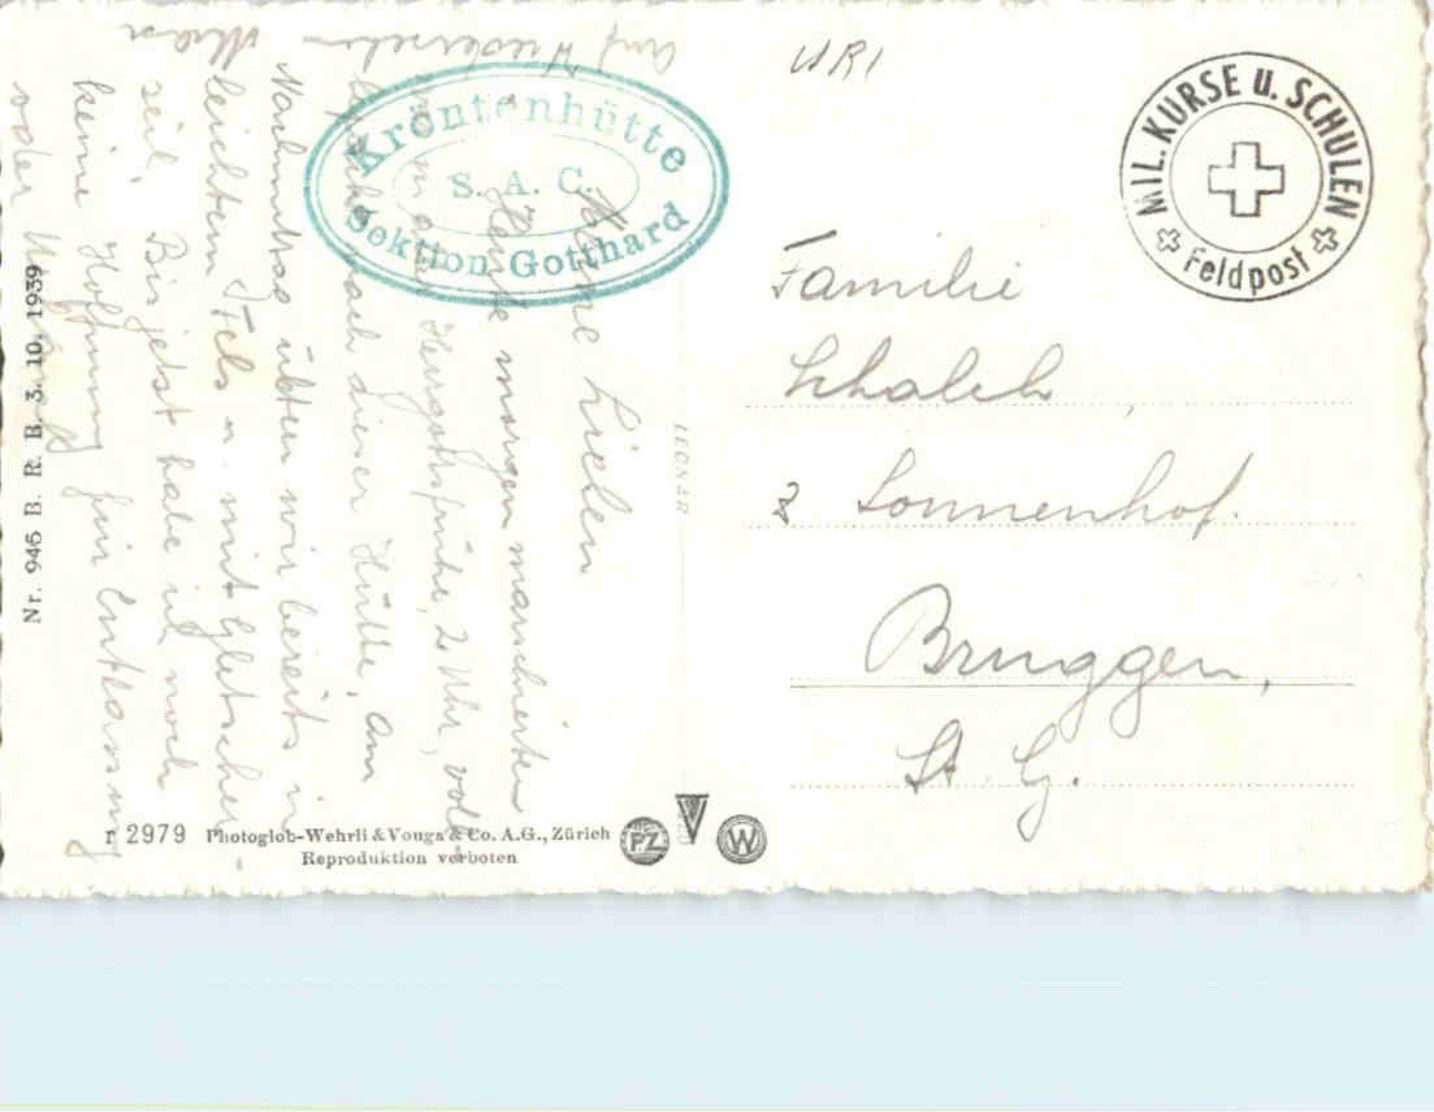 Meine Lieben
Heute morgen marschierten
wir in aller Herrgottsfrühe, 2 Uhr, voll
bepackt nach dieser Hütte, am
Nachmittag übten wir bereits in
leichtem Fels u. mit Gletscher-
seil. Bis jetzt habe ich noch
keine Hoffnung für Entlassung
oder Urlaub
Auf Wiedersehn
Kröntenhütte
S. A. C.
Sektion Gotthard
URI
MIL. KURSE u. SCHULEN
Feldpost
Familie
z Sonnenhof.
Bruggen,
St. G.
LEONAR
Nr. 945 B. R. B. 3. 10. 1939
r 2979 Photoglob-Wehrli & Vouga & Co. A.G., Zürich
Reproduktion verboten
PZ
W